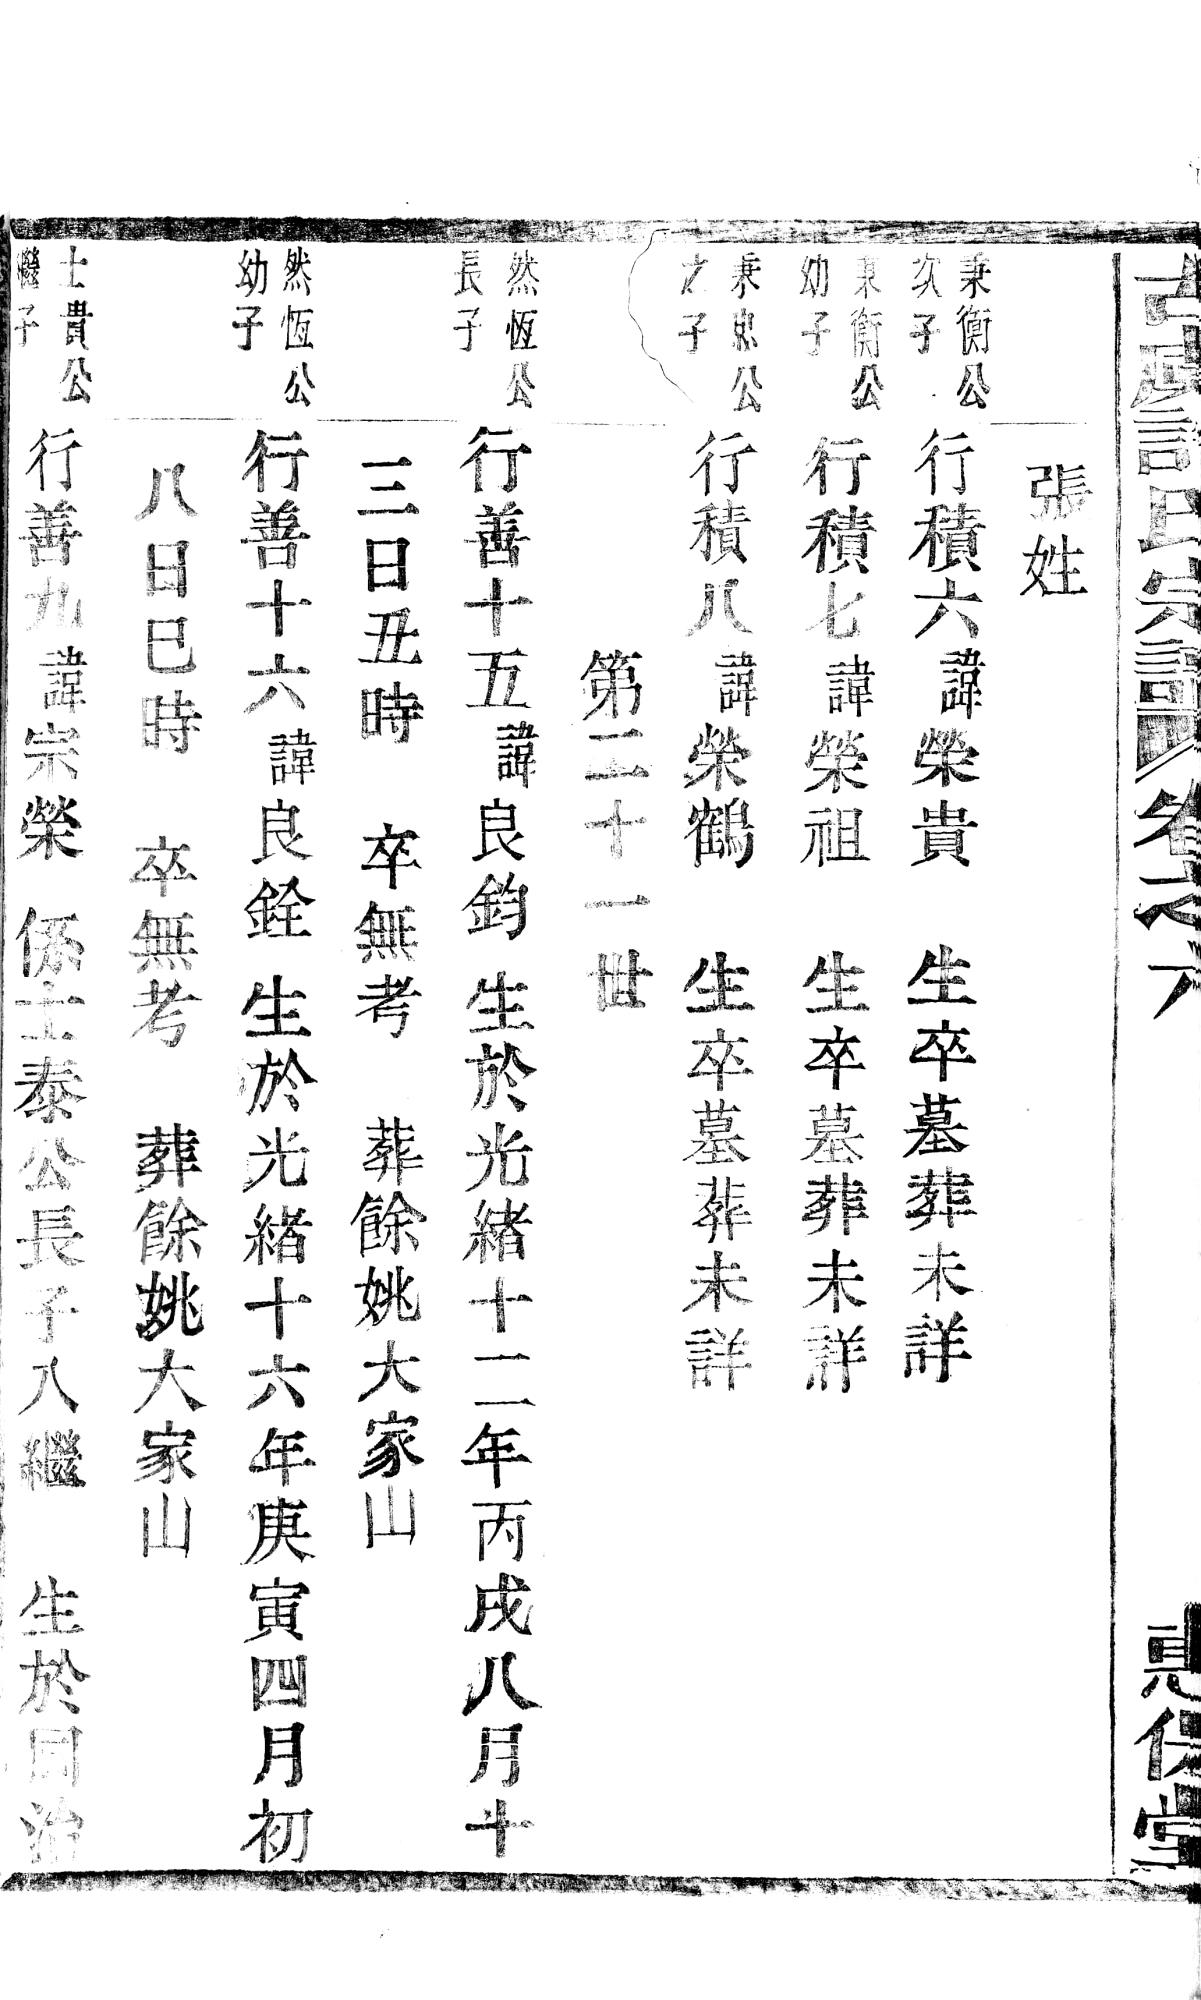 古虞許氏宗譜 卷之六 惠保堂
張姓
秉衡公次子 行積六諱榮貴 生卒墓葬未詳
秉衡公幼子 行積七諱榮祖 生卒墓葬未詳
秉忠公之子 行積八諱榮鶴 生卒墓葬未詳
第二十一世
然恆公長子 行善十五諱良鈞 生於光緒十二年丙戌八月十
三日丑時 卒無考 葬餘姚大家山
然恆公幼子 行善十六諱良銓 生於光緒十六年庚寅四月初
八日巳時 卒無考 葬餘姚大家山
士貴公繼子 行善九諱宗榮 係士泰公長子入繼 生於同治